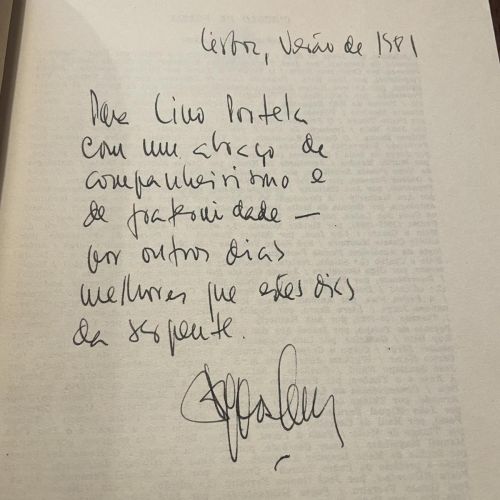 Lisboa, Verão de 1981
Para Lino Portela
com um abraço de
companheirismo e
de fraternidade —
por outros dias
melhores que estes dias
da serpente.